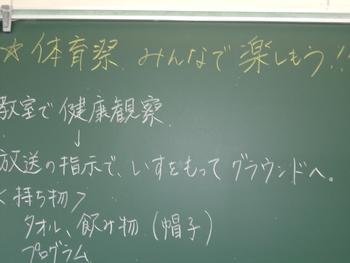 ☆体育祭 みんなで楽しもう!!
教室で健康観察
↓
放送の指示で、いすをもってグラウンドへ。
<持ち物>
タオル、飲み物(帽子)
プログラム